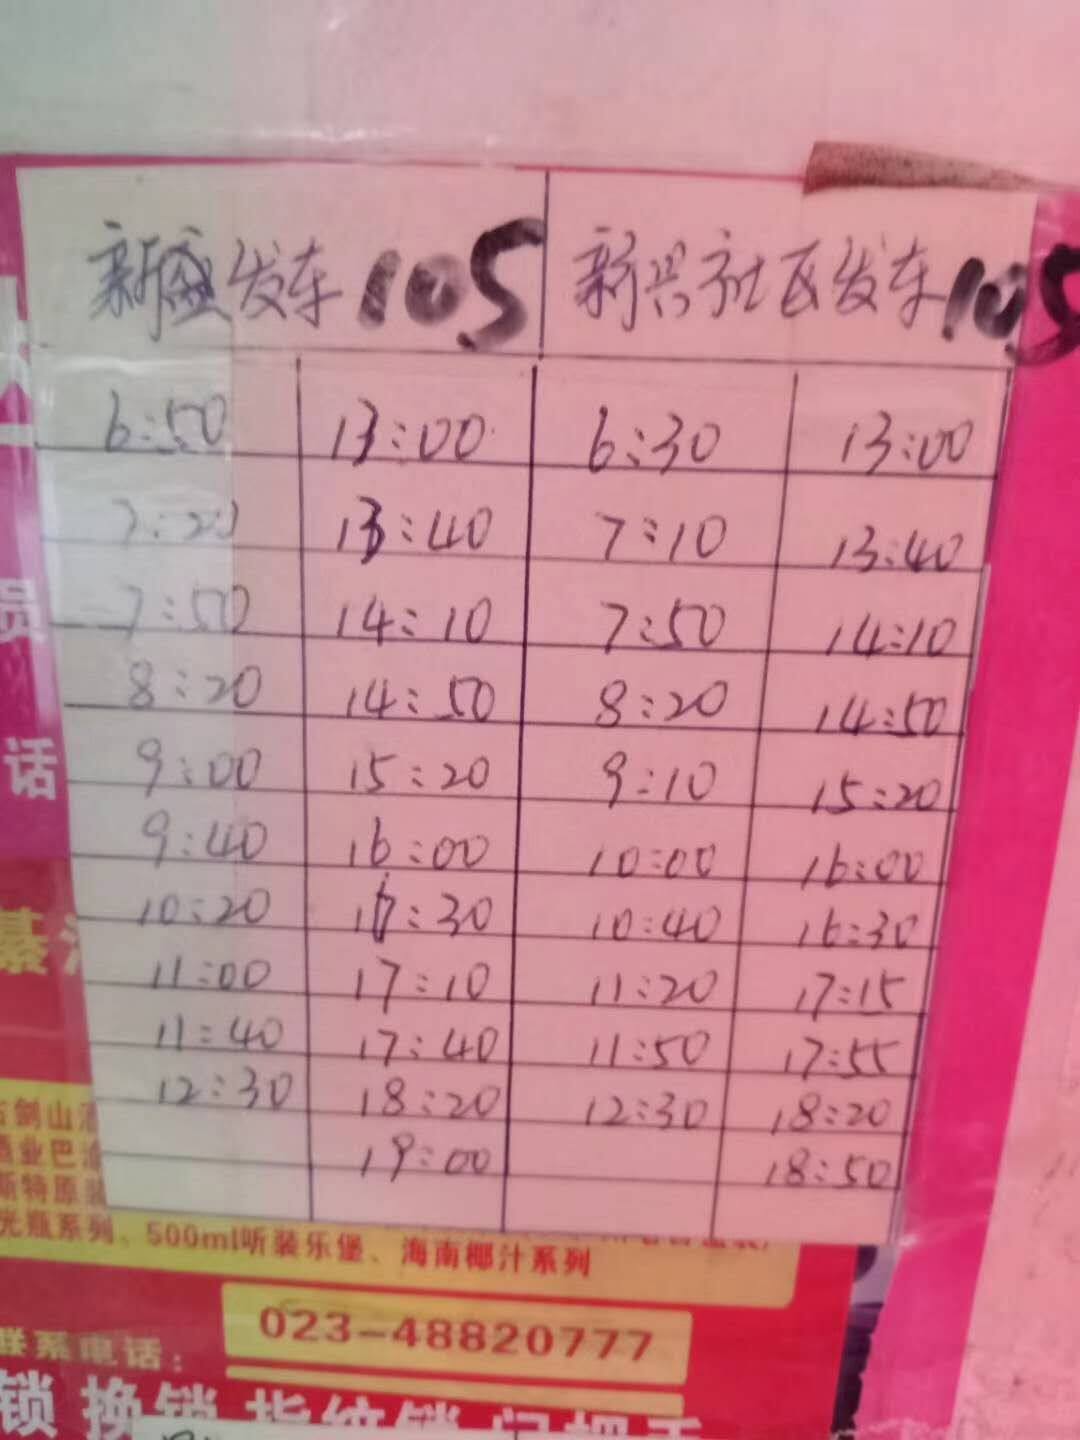 新盛发车 105 新兴社区发车 105
6:50 13:00 6:30 13:00
7:20 13:40 7:10 13:40
7:50 14:10 7:50 14:10
8:20 14:50 8:20 14:50
9:00 15:20 9:10 15:20
9:40 16:00 10:00 16:00
10:20 16:30 10:40 16:30
11:00 17:10 11:20 17:15
11:40 17:40 11:50 17:55
12:30 18:20 12:30 18:20
19:00 18:50
员
话
綦
古剑山
酒业巴渝
斯特原装
光瓶系列、500ml听装乐堡、海南椰汁系列
联系电话: 023-48820777
锁 换锁 指纹锁 门把手